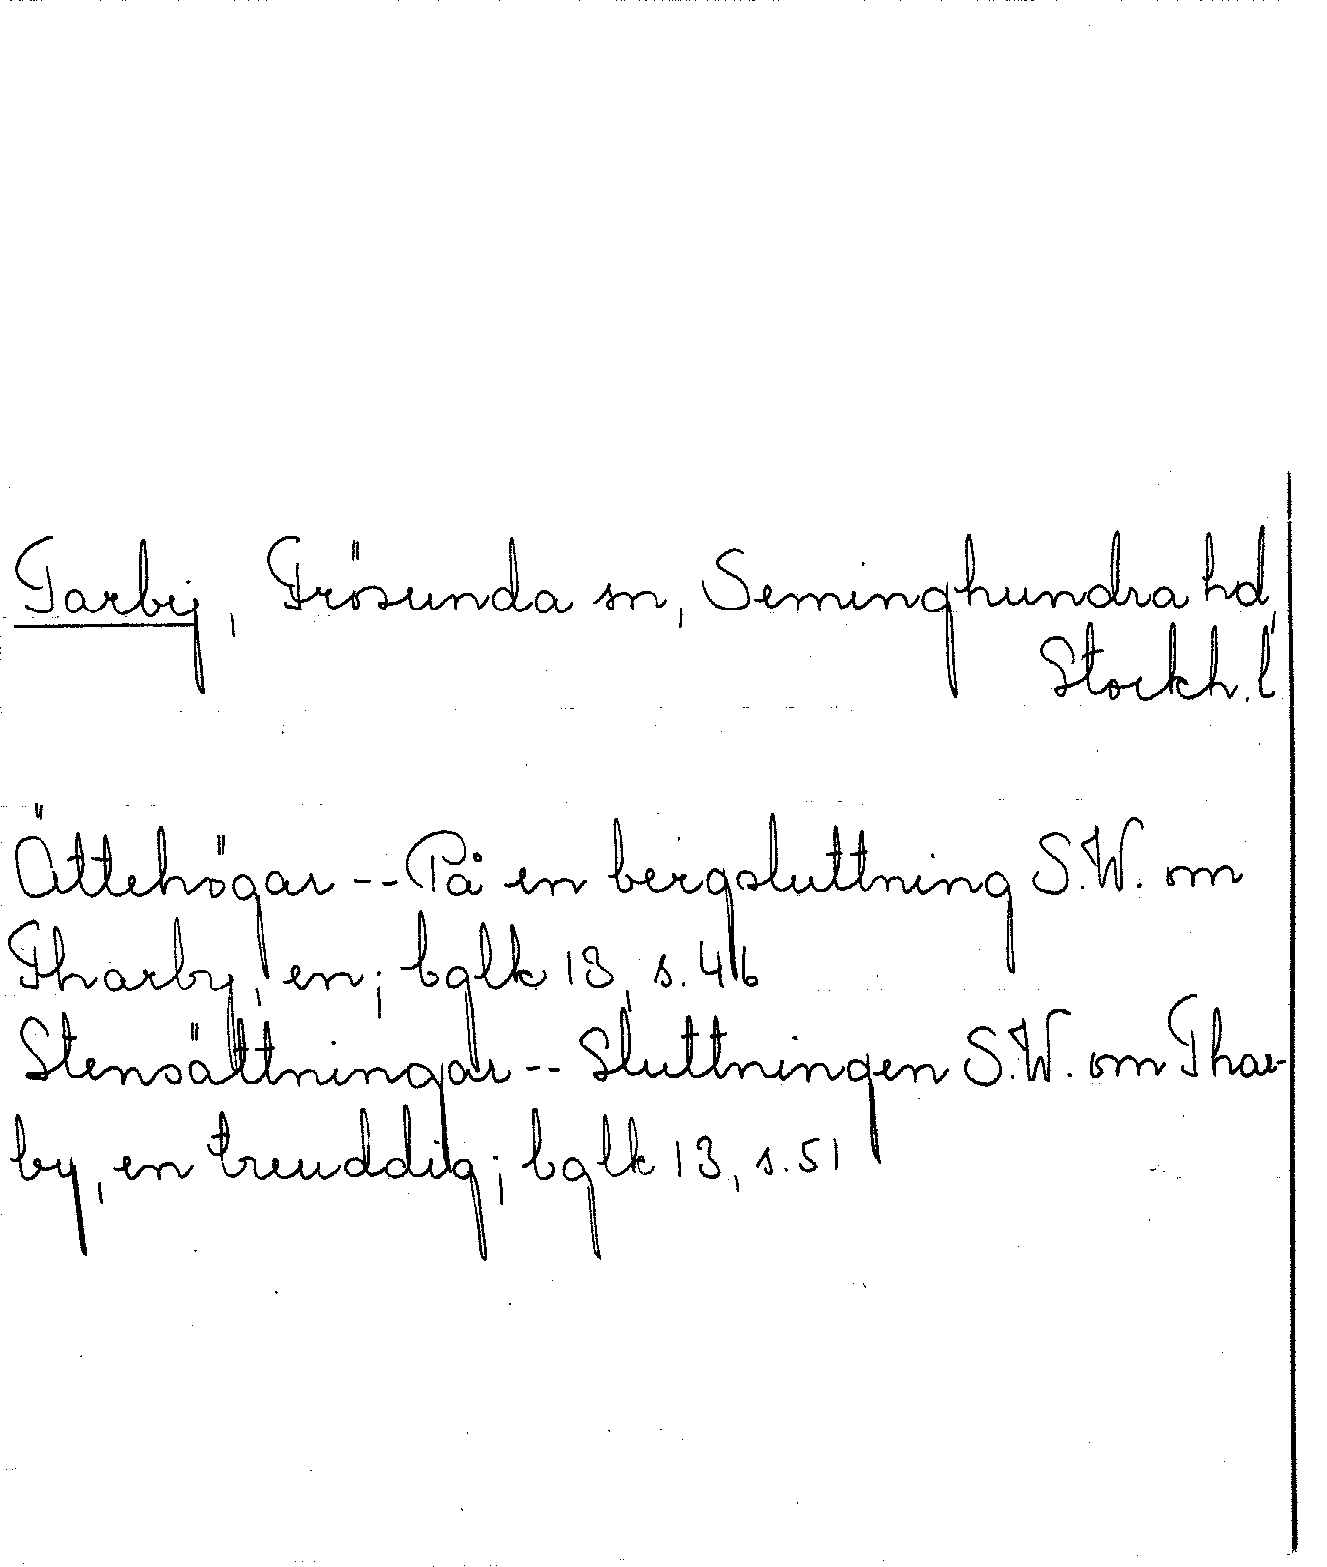 Tarby, Frösunda sn, Seminghundra hd,
Stockh. l
Ättehögar -- På en bergsluttning S.W. om
Tharby, en; bglk 13, s. 46
Stensättningar -- Sluttningen S.W. om Thar-
by, en treuddig; bglk 13, s. 51